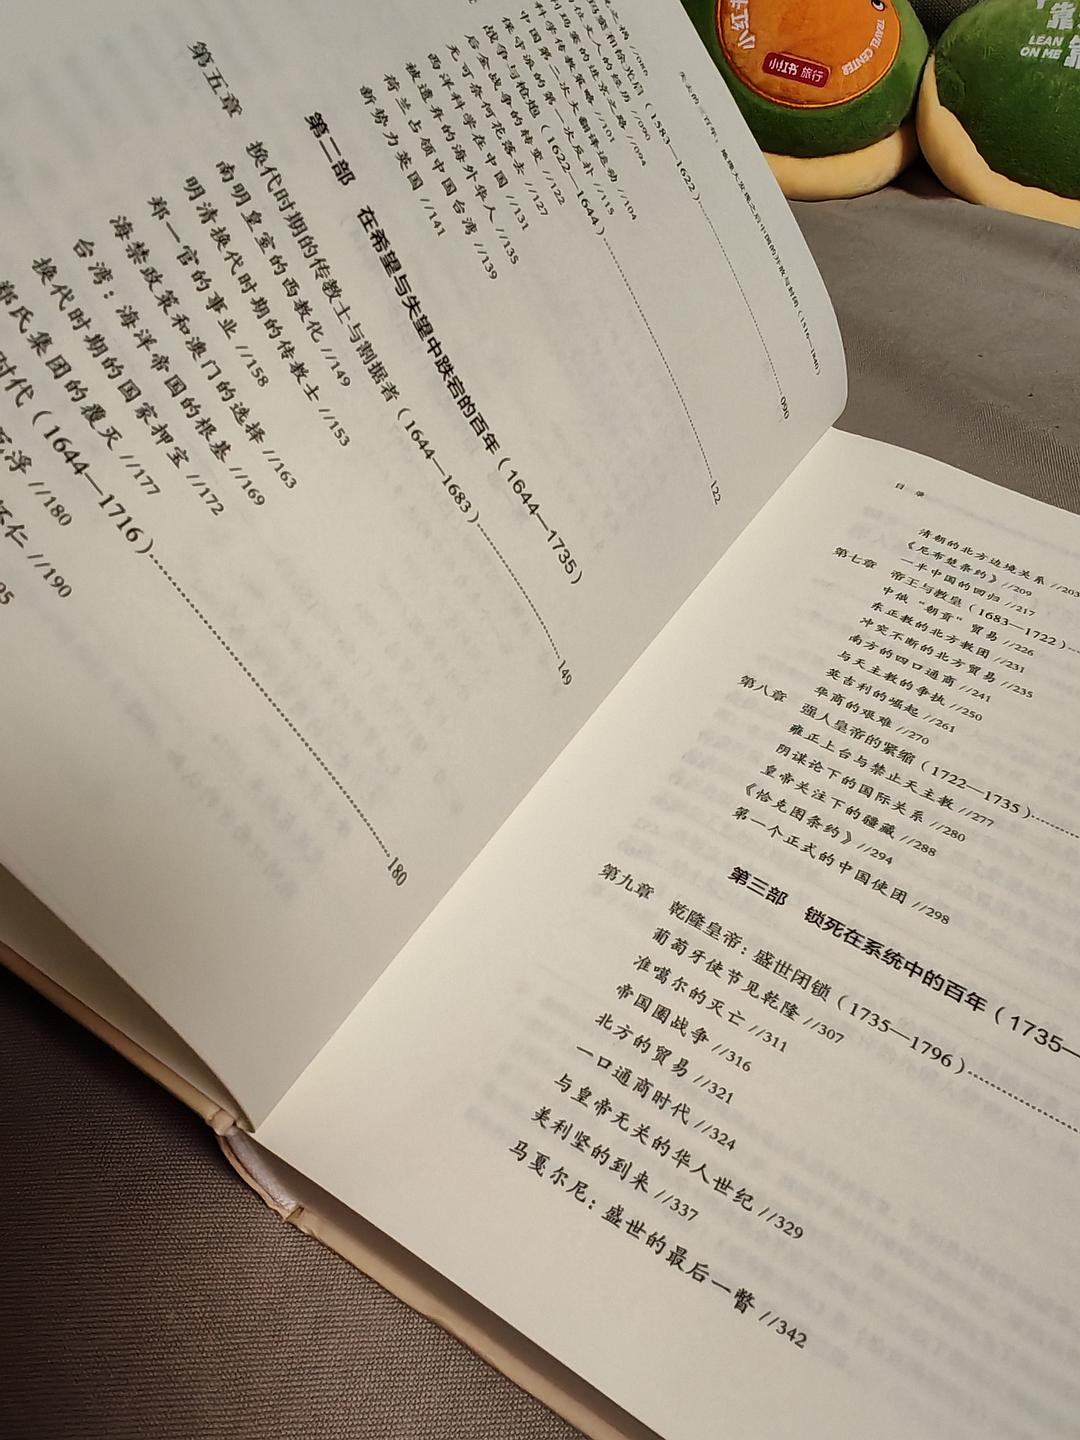 失去的三百年：地理大发现之后中国的开放与封闭（1516—1840）
//086
（1583—1622）
090
//090
进京之路 //094
科学传教策略 //101
中国第二次大翻译运动 //104
保守派的第一次反扑 //115
战争与枪炮（1622—1644）
122
后金战争的转变 //122
无可奈何花落去 //127
西洋科学在中国 //131
被遗弃的海外华人 //135
荷兰占领中国台湾 //139
新势力英国 //141
第二部 在希望与失望中跌宕的百年（1644—1735）
第五章 换代时期的传教士与割据者（1644—1683）
149
南明皇室的西教化 //149
明清换代时期的传教士 //153
郑一官的事业 //158
海禁政策和澳门的选择 //163
台湾：海洋帝国的根基 //169
换代时期的国家押宝 //172
郑氏集团的覆灭 //177
时代（1644—1716）
180
浮 //180
怀仁 //190
目录
清朝的北方边境关系 //203
《尼布楚条约》 //209
一半中国的回归 //217
第七章 帝王与教皇（1683—1722）
中俄“朝贡”贸易 //226
东正教的北方教团 //231
冲突不断的北方贸易 //235
南方的四口通商 //241
与天主教的争执 //250
英吉利的崛起 //261
华商的艰难 //270
第八章 强人皇帝的紧缩（1722—1735）
雍正上台与禁止天主教 //277
阴谋论下的国际关系 //280
皇帝关注下的疆藏 //288
《恰克图条约》 //294
第一个正式的中国使团 //298
第三部 锁死在系统中的百年（1735—
第九章 乾隆皇帝：盛世闭锁（1735—1796）
葡萄牙使节见乾隆 //307
准噶尔的灭亡 //311
帝国圈战争 //316
北方的贸易 //321
一口通商时代 //324
与皇帝无关的华人世纪 //329
美利坚的到来 //337
马戛尔尼：盛世的最后一瞥 //342
小红书
TRAVEL CENTER
小红书 旅行
靠
LEAN
ON ME
靠